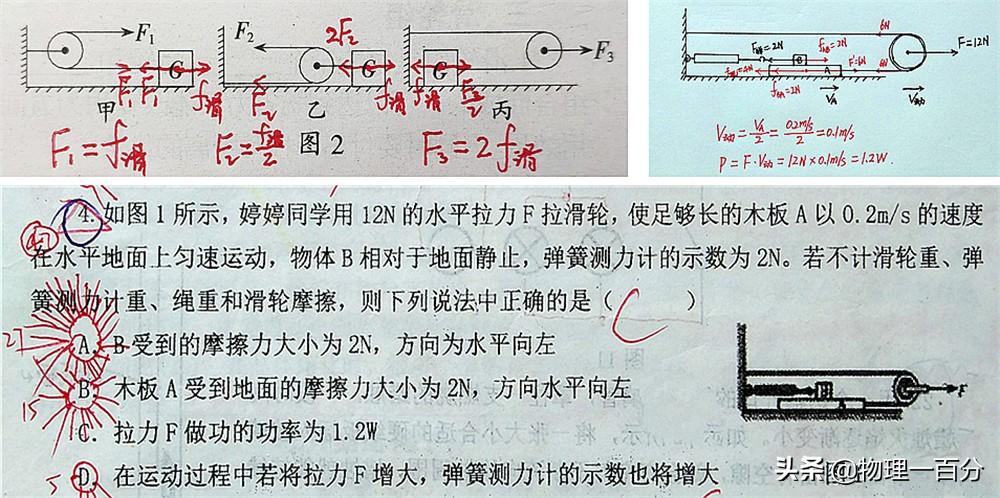 F₁
F₂
2F₂
F₃
G
G
G
F₁
F₁
f滑
F₂
f滑
f滑
F₃/2
甲
乙
丙
图 2
F₁=f滑
F₂=f滑/2
F₃=2f滑
6N
F=12N
B
A
F'=6N
6N
V_A
V动
V动=V_A/2=0.2m/s/2=0.1m/s
P=F·V动=12N×0.1m/s=1.2W.
4.如图 1 所示，婷婷同学用 12N 的水平拉力 F 拉滑轮，使足够长的木板 A 以 0.2m/s 的速度
在水平地面上匀速运动，物体 B 相对于地面静止，弹簧测力计的示数为 2N。若不计滑轮重、弹
簧测力计重、绳重和滑轮摩擦，则下列说法中正确的是（ C ）
27
A. B 受到的摩擦力大小为 2N，方向为水平向左
B. 木板 A 受到地面的摩擦力大小为 2N，方向水平向左
15
C. 拉力 F 做功的功率为 1.2W
5
D. 在运动过程中若将拉力 F 增大，弹簧测力计的示数也将增大
B
A
F
头条@物理一百分